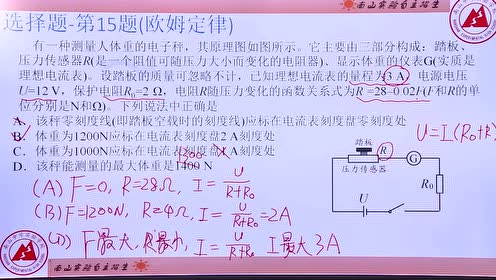 选择题-第15题(欧姆定律)
有一种测量人体重的电子秤，其原理图如图所示。它主要由三部分构成：踏板、
压力传感器R(是一个阻值可随压力大小而变化的电阻器)、显示体重的仪表G(实质是
理想电流表)。设踏板的质量可忽略不计，已知理想电流表的量程为3 A，电源电压
U=12 V，保护电阻R₀=2 Ω，电阻R随压力变化的函数关系式为R=28-0.02F(F和R的单
位分别是N和Ω)。下列说法中正确是
A、该秤零刻度线(即踏板空载时的刻度线)应标在电流表刻度盘零刻度处
B、体重为1200N应标在电流表刻度盘2 A刻度处
C．体重为1000N应标在电流表刻度盘 A刻度处
D．该秤能测量的最大体重是1400 N
1300
U=I(R₀+R)
踏板
R
G
压力传感器
R₀
U
(A) F=0, R=28Ω, I=U/R+R₀
(B) F=1200N, R=4Ω, I=U/R+R₀=2A
(D) F最大, R最小, I=U/R+R₀ I最大3A
南山实验自主招生
南山实验自主招生